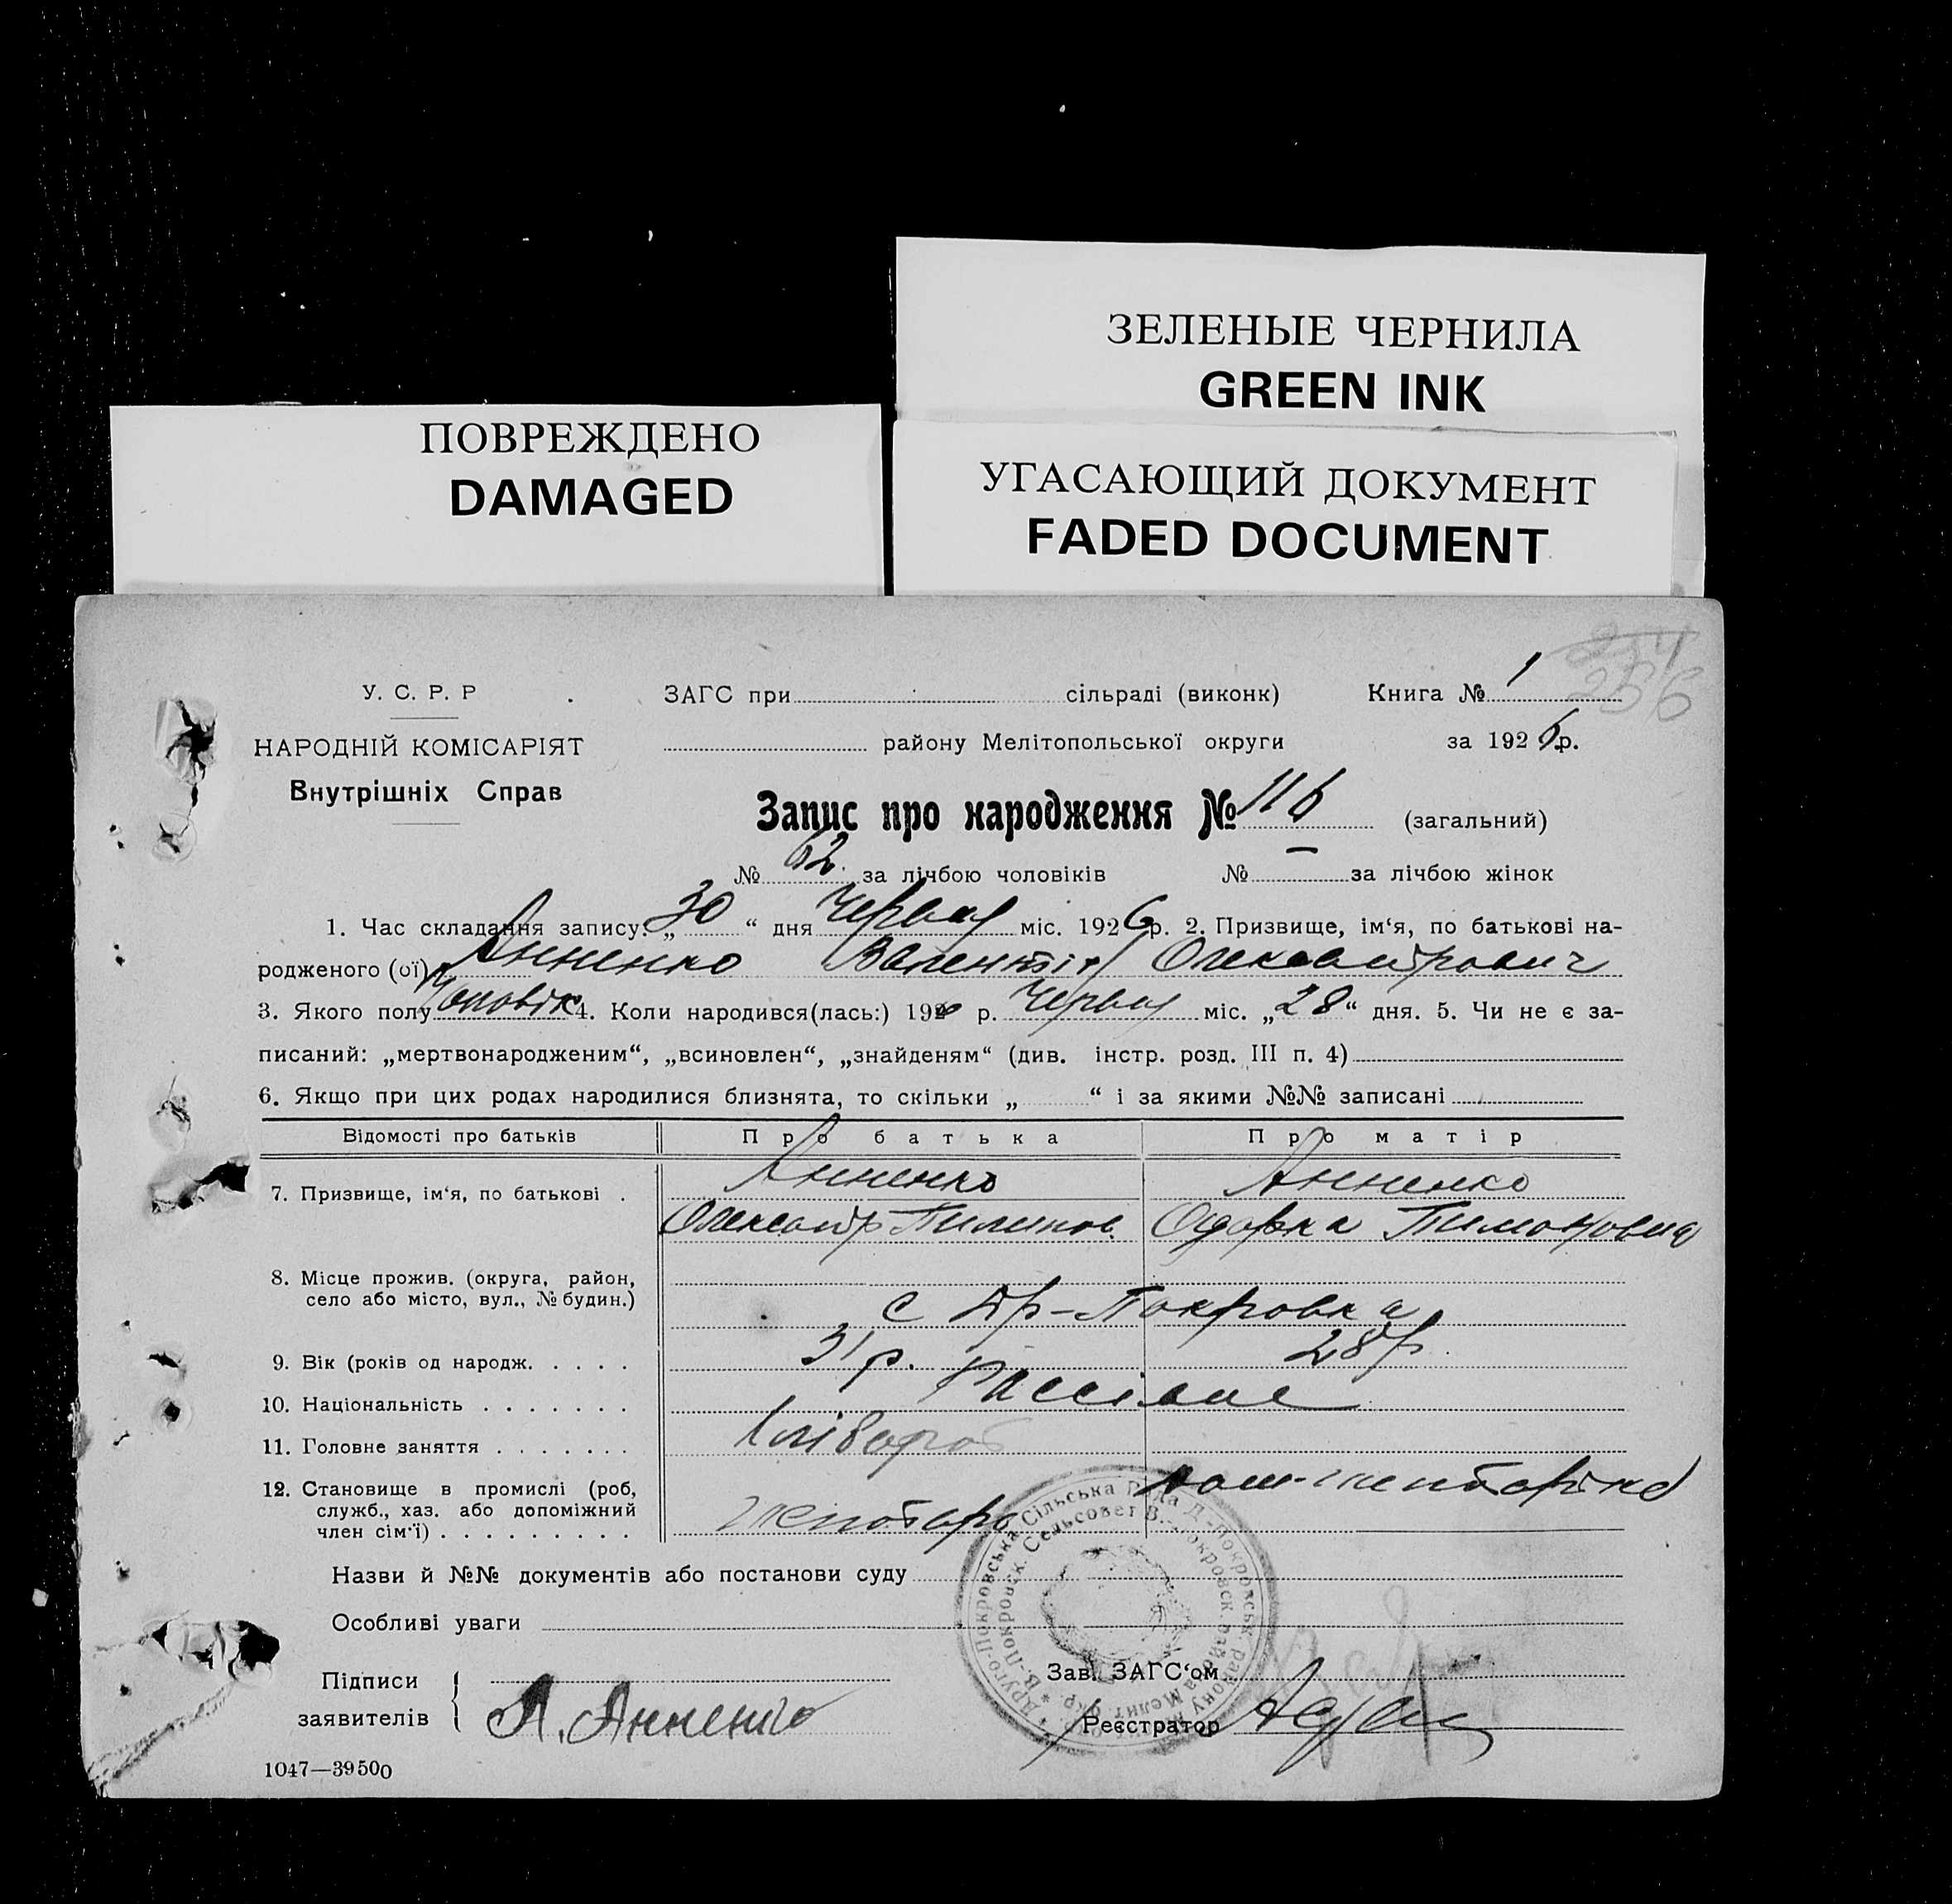 ЗЕЛЕНЫЕ ЧЕРНИЛА
GREEN INK
ПОВРЕЖДЕНО
DAMAGED
УГАСАЮЩИЙ ДОКУМЕНТ
FADED DOCUMENT
256
У. С. Р. Р ЗАГС при сільраді (виконк) Книга № 1
НАРОДНІЙ КОМІСАРІЯТ району Мелітопольської округи за 1926 р.
Внутрішніх Справ
Запис про народження № 116 (загальний)
№ 62. за лічбою чоловіків № — за лічбою жінок
1. Час складання запису: „30“ дня Червня міс. 1926 р. 2. Призвище, ім‘я, по батькові на-
родженого (ої) Анненко Валентін Олександрович
3. Якого полу Чоловік 4. Коли народився(лась:) 1926 р. Червня міс. „28“ дня. 5. Чи не є за-
писаний: „мертвонародженим“, „всиновлен“, „знайденям“ (див. інстр. розд. III п. 4)
6. Якщо при цих родах народилися близнята, то скільки „ “ і за якими №№ записані
Відомості про батьків Про батька Про матір
7. Призвище, ім‘я, по батькові . Анненко Анненко
Олександр Пилипов. Одарка
8. Місце прожив. (округа, район,
село або місто, вул., № будин.) с Др-Покровка
9. Вік (років од народж. . . . . 31 р. 28 р.
10. Національність . . . . . . . Россіяне
11. Головне заняття . . . . . . . Хлібороб
12. Становище в промислі (роб,
служб., хаз. або допоміжний
член сім‘ї) . . . . . . . . .
Назви й №№ документів або постанови суду
Особливі уваги
Друго-Покровська Сільська Рада Д-Покровськ. району
В.-Покровск. Сельсовет В.-Покровск. района Мелит. окр.
Підписи Зав. ЗАГС‘ом
заявителів А. Анненко Реєстратор
1047—39500